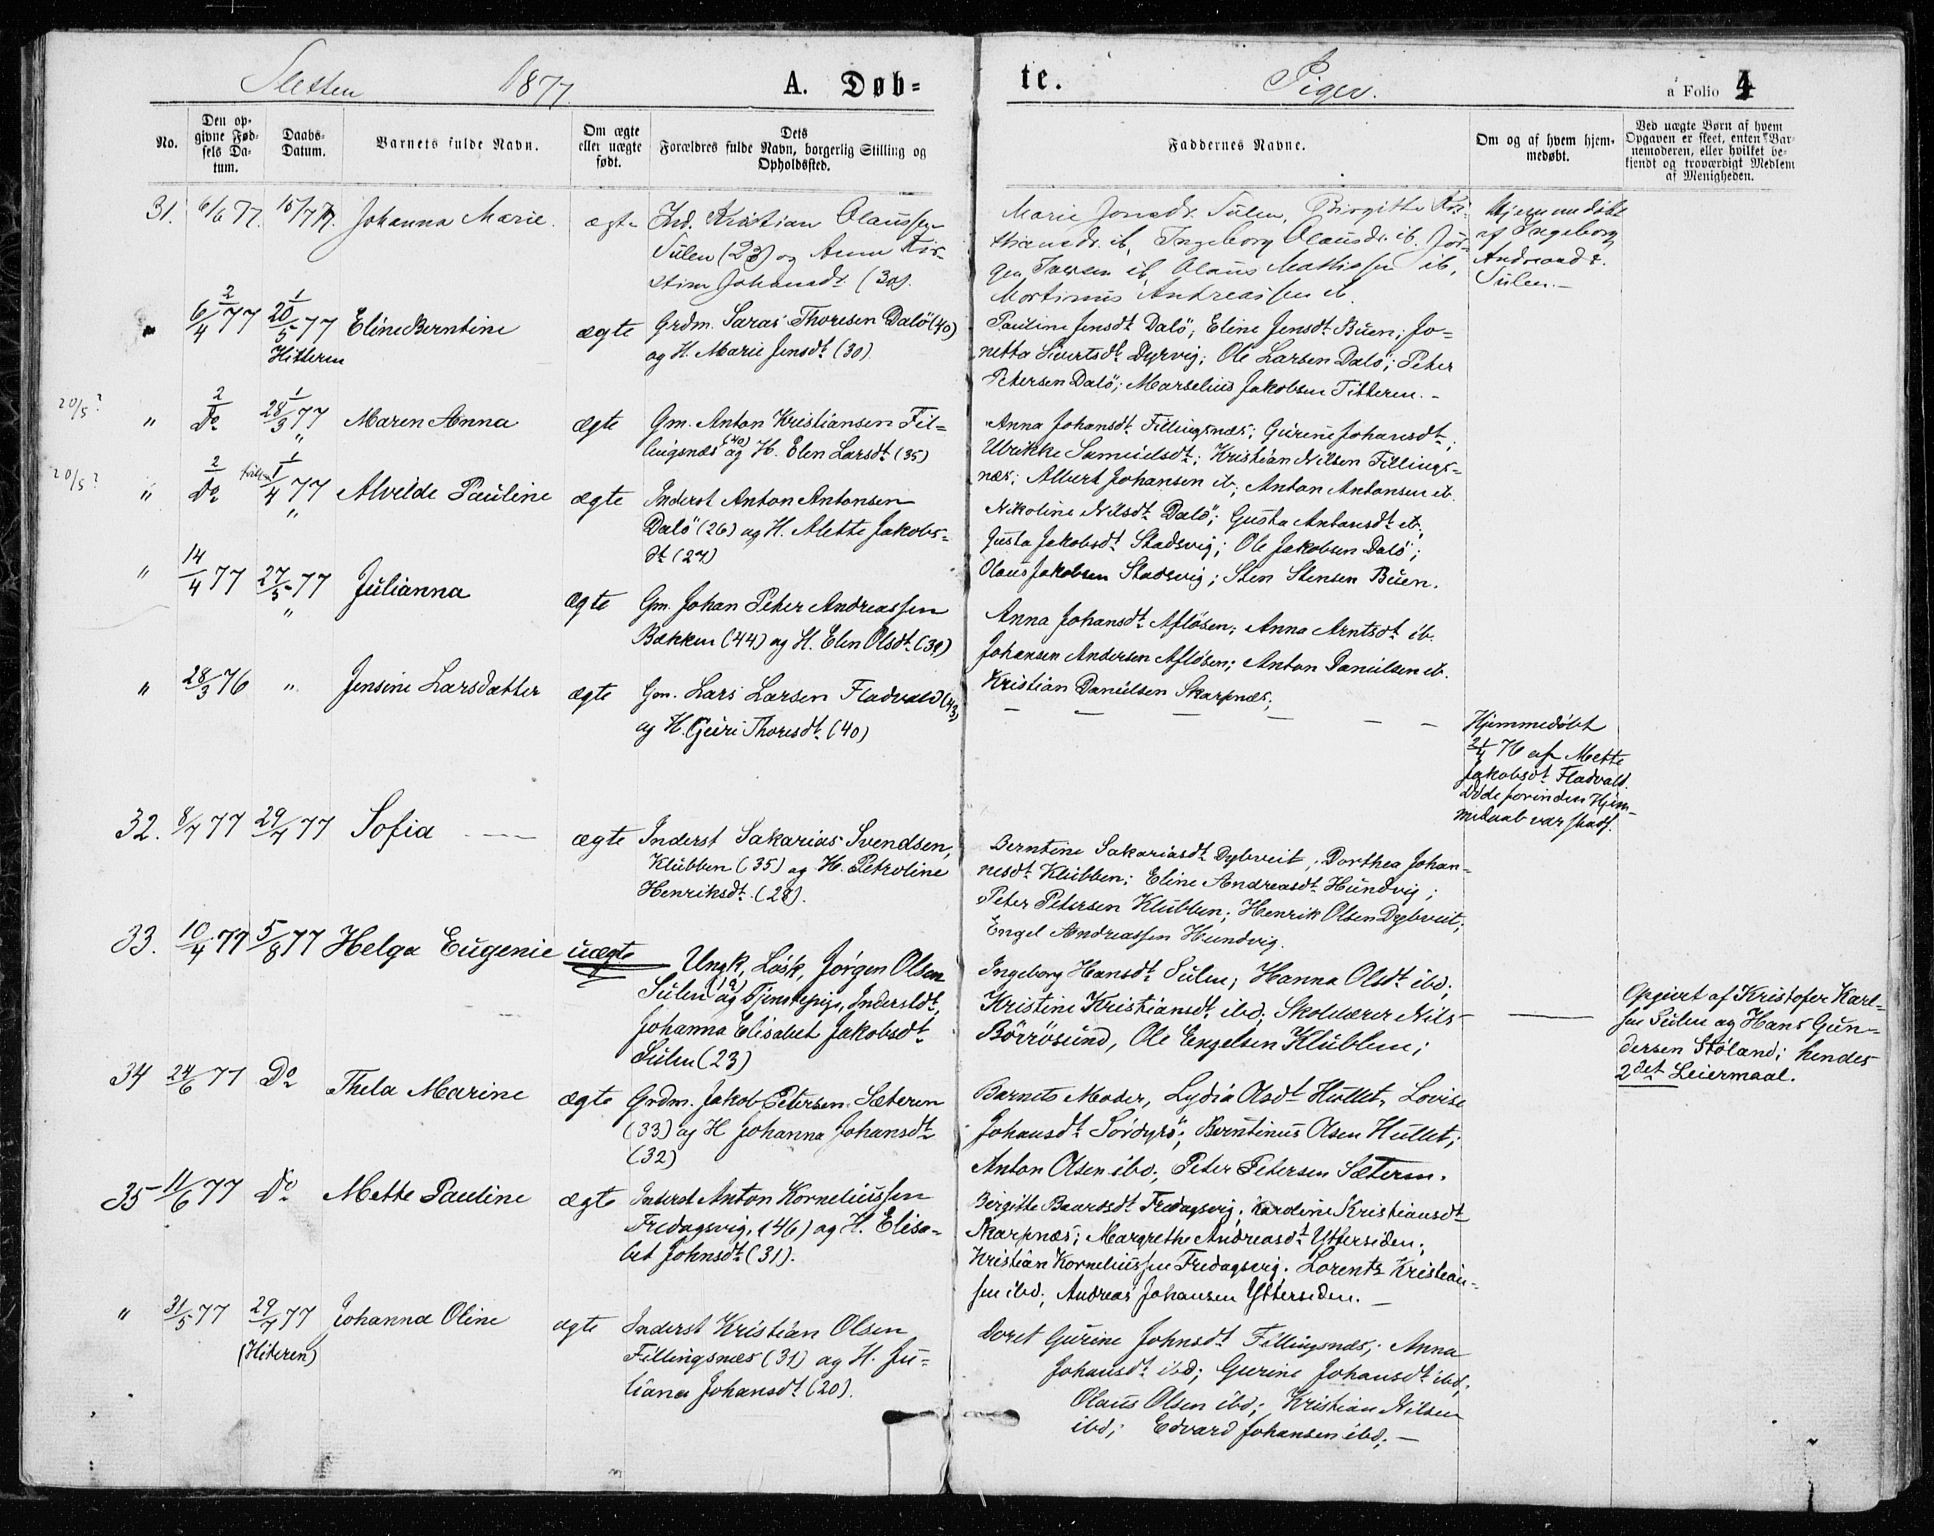 Sletten 1877. A. Døb-
te. Piger. a Folio 4
No.
Den op-
givne Fød-
sels Da-
tum.
Daabs-
Datum.
Barnets fulde Navn.
Om ægte
eller uægte
født.
Dets
Forældres fulde Navn, borgerlig Stilling og
Opholdssted.
Faddernes Navne.
Om og af hvem hjem-
medøbt.
Ved uægte Børn af hvem
Opgaven er skeet, enten Bar-
nemoderen, eller hvilket be-
kjendt og troværdigt Medlem
af Menigheden.
31. 6/6 77. 15/7 77. Johanna Marie. ægte
Ind. Kristian Olaussen
Sulen (23) og Anna Kir-
stine Johansdr (30).
Marie Jonsdr. Sulen, Birgitte Kri-
stiansdr. ib, Ingeborg Olausdr. ib. Jør-
gen Iversen ib, Olaus Mathissen ib,
Mortinus Andreassen ib.
Hjemmedøbt
af Ingeborg
Andreasdr.
Sulen.-
" 2 6/4 77 1 20/5 77 Eline Berntine ægte
Hitteren
Grdm. Saras Thoresen Dalö (40)
og H. Marie Jensdt (30).
Pauline Jensdt Dalö; Eline Jensdt Buen; Jo-
netta Sivertsdt Dyrvig; Ole Larsen Dalö; Peter
Petersen Dalö; Marselius Jakobsen Titteren.-
20/5?
" 2 Do 1 28/3 77 Maren Anna ægte
"
Gm. Anton Kristiansen Fil-
lingsnæs (40) og H. Elen Larsdt (35)
Anna Johansdt Fillingsnæs; Gurine Johansdt;
Ulrikke Samuelsdt; Kristian Nilsen Fillings-
næs; Albert Johansen ib; Anton Antonsen ib.
20/5?
" 2 Do 1 1/4 77 Alvilde Pauline ægte
"
Inderst Anton Antonsen
Dalö (26) og H. Alette Jakobs-
dt (27)
Nikoline Nilsdt Dalö; Gusta Antonsdt ib;
Gusta Jakobsdt Stadsvig; Ole Jakobsen Dalö;
Olaus Jakobsen Stadsvig; Sten Stensen Buen.
" 14/4 77 27/5 77 Julianna ægte
"
Gm. Johan Peter Andreassen
Bækken (44) og H. Elen Olsdt (39)
Anna Johansdt Aflösen; Anna Arntsdt ib.
Johansen Andersen Aflösen; Anton Danielsen ib.
Kristian Danielsen Skarpnæs;
" 28/3 76 " Jensine Larsdatter ægte
Gm. Lars Larsen Fladvald (43)
og H. Guri Thoresdt (40)
- - - - - -
Hjemmedøbt
2/4 76 af Mette
Jakobsdt Fladvald.
Døde forinden Hjem-
medaab var stadf.
32. 8/7 77 29/7 77 Sofia - - ægte
Inderst Sakarias Svendsen,
Klubben (35) og H. Petroline
Henriksdt. (28).
Berntine Sakariasdt Dybveit, Dorthea Johan-
nesdt Klubben; Eline Andreasdt Hundvig;
Peter Petersen Klubben; Henrik Olsen Dybveit;
Engel Andreassen Hundvig.
33. 10/4 77 5/8 77 Helga Eugenie uægte
Ungk, Løsk, Jørgen Olsen
Sulen (19) og Tjenstepige, Inderstdt,
Johanna Elisabet Jakobsdt
Sulen (23)
Ingeborg Hansdt Sulen; Hanna Olsdt ibd;
Kristine Kristiansdt ibd; Skolelærer Nils
Börrösund, Ole Engelsen Klubben;
Opgivet af Kristofer Karl-
sen Sulen og Hans Gun-
dersen Stöland; hendes
2det Leiermaal.
34 24/6 77 Do Thela Marine ægte
Grdm. Jakob Petersen Sæteren
(33) og H Johanna Johansdt
(32)
Barnets Moder, Lydia Olsdt Hullet, Lovise
Johansdt Sördyrö; Berntinus Olsen Hullet;
Anton Olsen ibd; Peter Petersen Sæteren.
35 11/6 77 Do Mette Pauline ægte
Inderst Anton Korneliussen
Fredagsvig, (46) og H. Elisa-
bet Johnsdt (31).
Birgitte Baardsdt Fredagsvig; Karoline Kristiansdt
Skarpnæs; Margrethe Andreasdt Yttersiden;
Kristian Korneliussen Fredagsvig. Lorents Kristian-
sen ibd; Andreas Johansen Yttersiden.-
" 31/5 77 29/7 77 Johanna Oline ægte
(Hiteren)
Inderst Kristian Olsen
Fillingsnæs (31) og H. Ju-
liana Johansdt (20).
Doret Gurine Johnsdt Fillingsnæs; Anna
Johansdt ibd; Gurine Johansdt ibd;
Olaus Olsen ibd; Kristian Nilsen
ibd; Edvard Johansen ibd;-